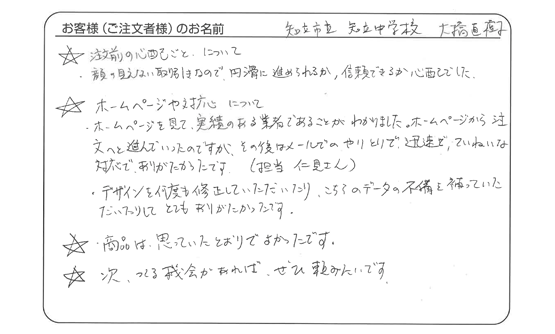 お客様（ご注文者様）のお名前 知立市立 知立中学校 大橋直樹
☆ 注文前の心配ごと について
・顔の見えない取引きなので、円滑に進められるか、信頼できるか心配でした。
☆ ホームページや対応 について
・ホームページを見て、実績のある業者であることがわかりました。ホームページから注
文へと進んでいったのですが、その後はメールでのやりとりで、迅速で、ていねいな
対応で、ありがたかったです。 (担当 仁見さん)
・デザインを何度も修正していただいたり、こちらのデータの不備を補っていた
だいたりして とてもありがたかったです。
☆ 商品は、思っていたとおりでよかったです。
☆ 次、つくる機会があれば、ぜひ頼みたいです。